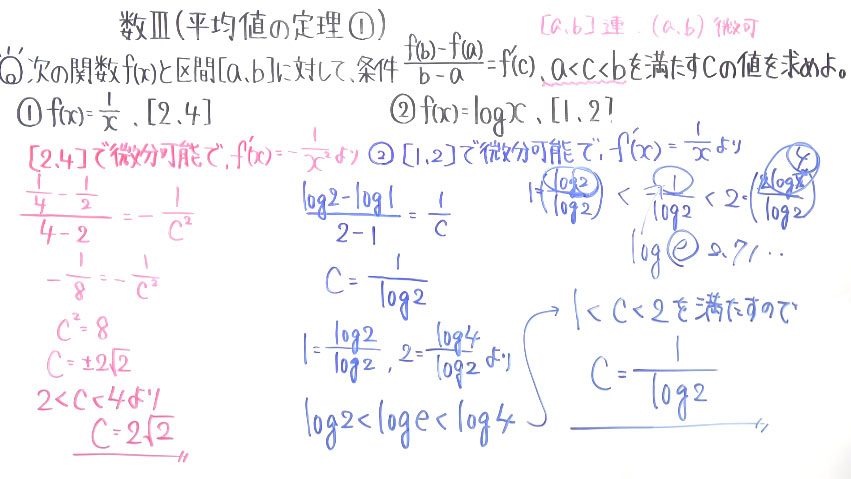 数Ⅲ(平均値の定理①)
[a,b]連、(a,b)微可
問 次の関数f(x)と区間[a,b]に対して、条件 f(b)-f(a)/b-a = f'(c)、a<c<bを満たすcの値を求めよ。
① f(x)=1/x、[2,4]
② f(x)=logx、[1,2]
[2,4]で微分可能で、f'(x)=-1/x²より
(1/4-1/2)/(4-2)=-1/c²
-1/8=-1/c²
c²=8
c=±2√2
2<c<4より
c=2√2
② [1,2]で微分可能で、f'(x)=1/xより
(log2-log1)/(2-1)=1/c
c=1/log2
1=log2/log2, 2=log4/log2より
log2<loge<log4
1=(log2/log2)<1/log2<2=(2log2/log2)
4
log e 2.71..
1<c<2を満たすので
c=1/log2